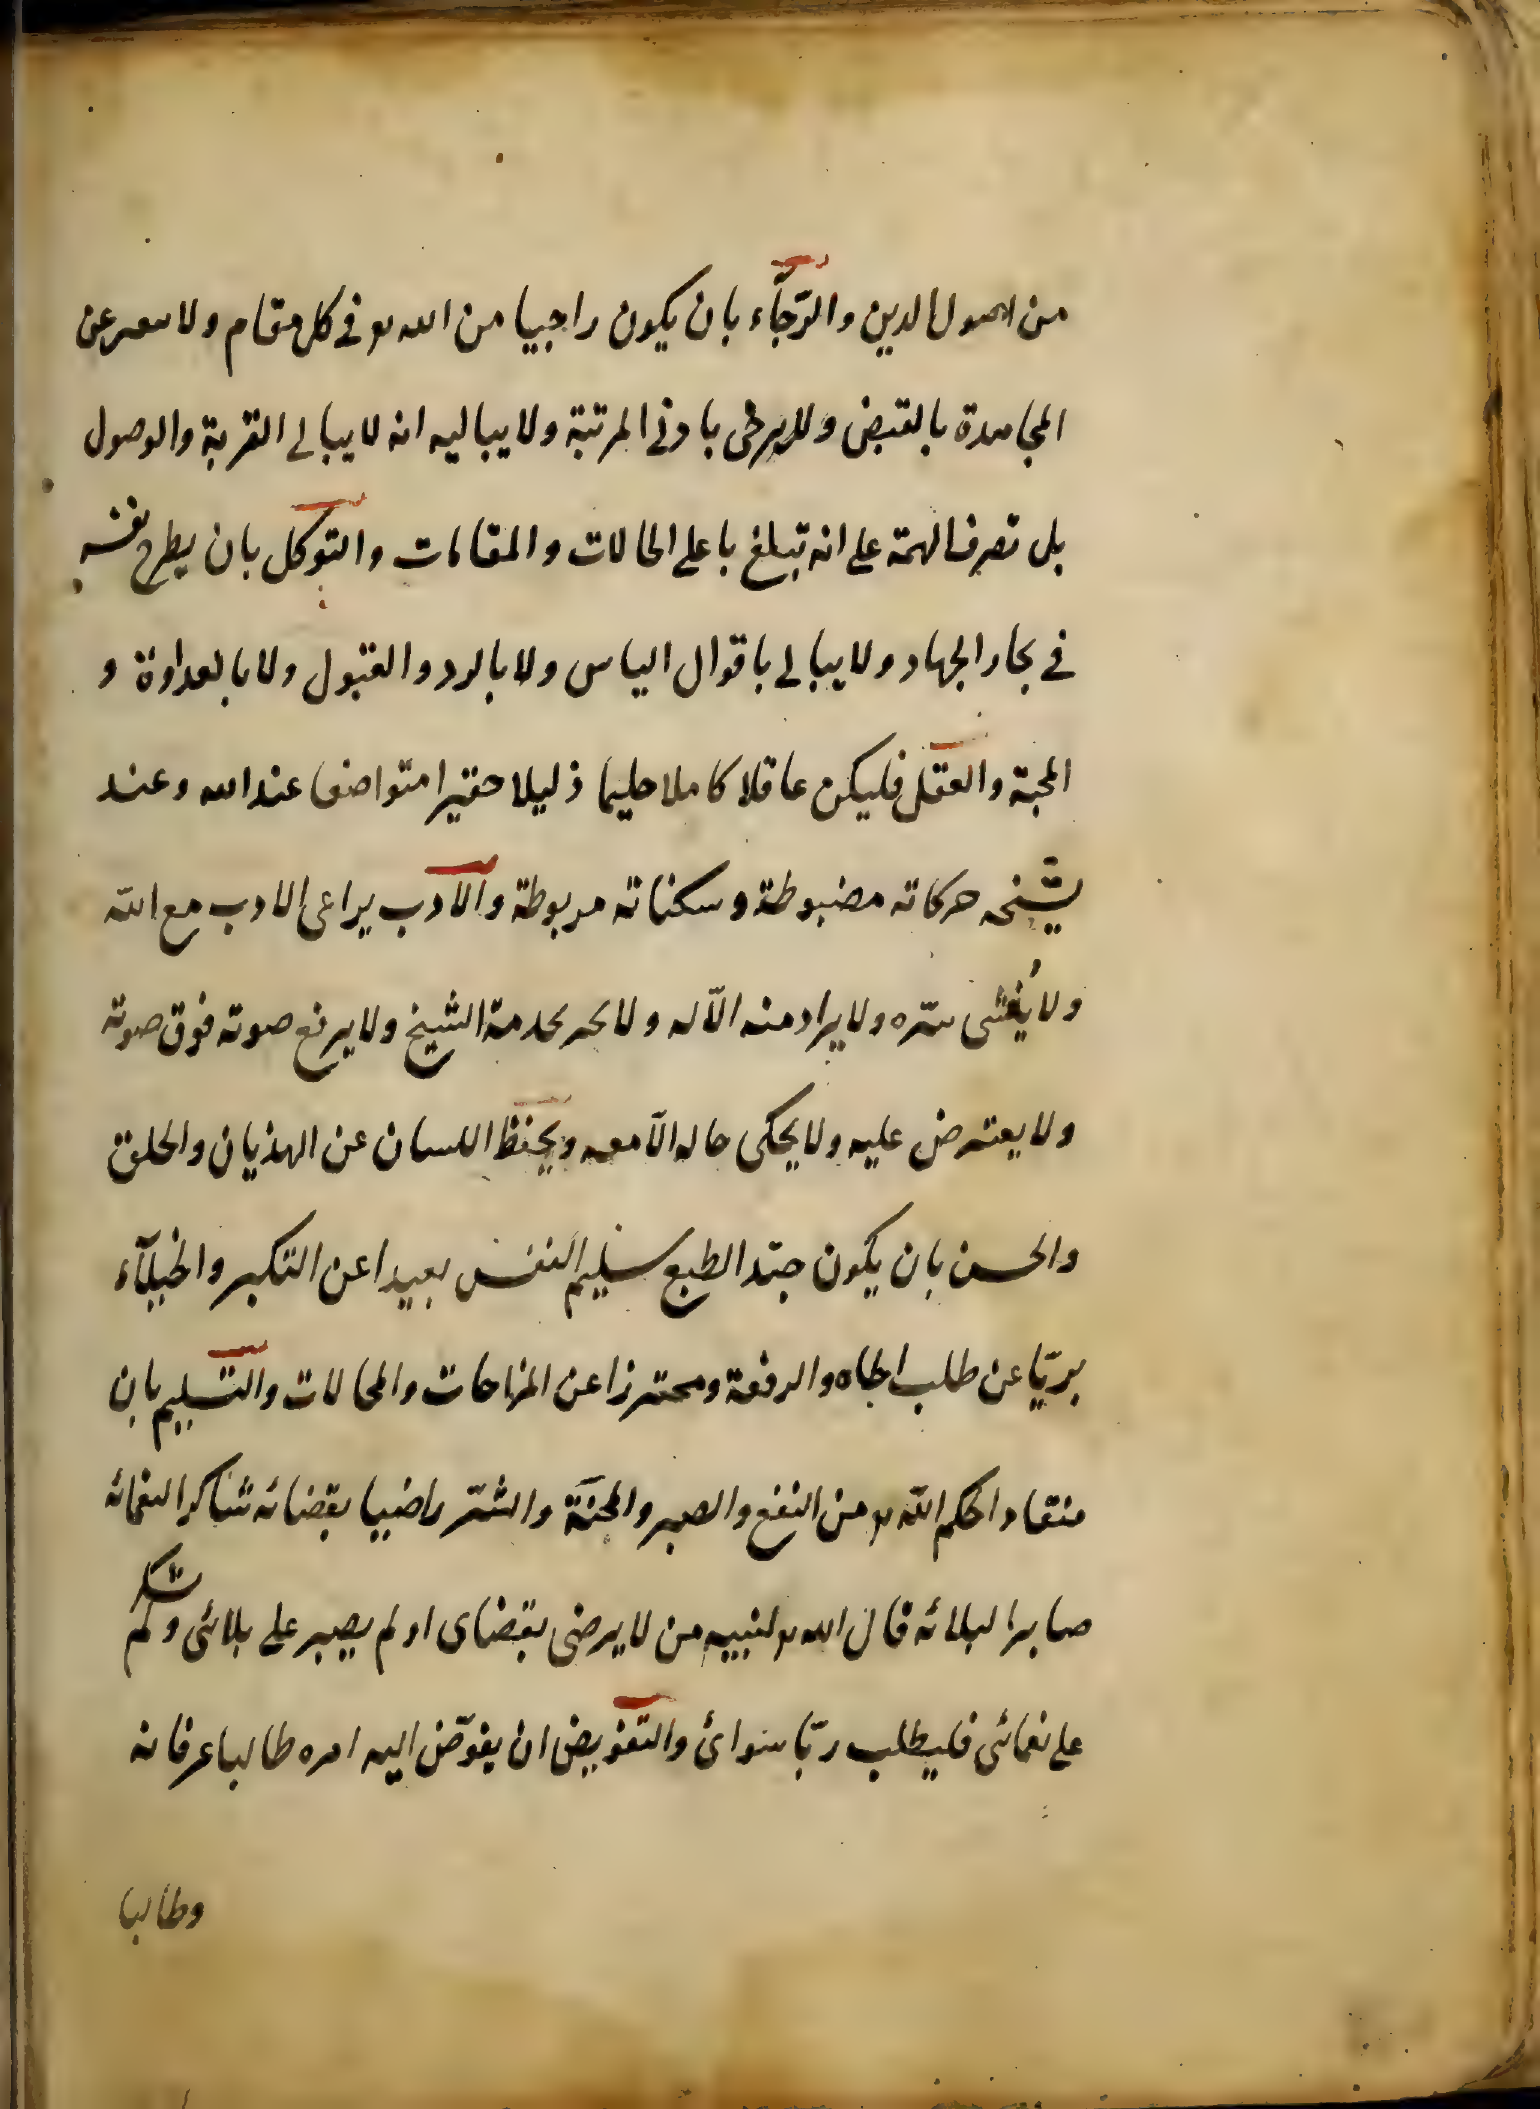 من اصول الدين والرّجآء بان يكون راجيا من الله تع فى كل مقام ولا يصبر عن
المجاهدة بالقبض ولا يرضى بادنى المرتبة ولا يباليه انه لا يبالى القربة والوصول
بل تصرف الهمة على انه تبلغ باعلى الحالات والمقامات والتوكل بان يطرح نفسه
فى بحار الجهاد ولا يبالى باقوال الناس ولا بالرد والقبول ولا بالعداوة و
المحبة والعقل فليكن عاقلا كاملا حليما ذليلا حقيرا متواضعا عند الله وعند
شيخه حركاته مضبوطة وسكناته مربوطة والادب يراعى الادب مع الله
ولا يُفشى سرّه ولا يراد منه الّا له ولا بخدمة الشيخ ولا يرفع صوته فوق صوته
ولا يعترض عليه ولا يحكى حاله الّا معه ويحفظ اللسان عن الهذيان والخلق
والحسن بان يكون جيّد الطبع سليم النفس بعيدا عن التكبر والخيلآء
بريّا عن طلب الجاه والرفعة ومحترزا عن المزاحات والمحالات والتسليم بان
منقادا لحكم الله تع من النفع والصبر والمحنة والشرّ راضيا بقضائه شاكرا لنعمائه
صابرا لبلائه قال الله تع لنبيه من لا يرضى بقضاى او لم يصبر على بلائى ولم يشكر
على نعمائى فليطلب ربّا سوائى والتفويض ان يفوّض اليه امره طالبا عرفانه
وطالبا